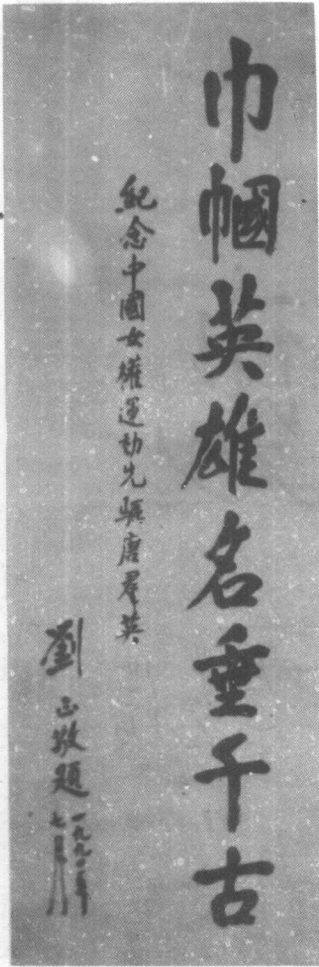 巾幗英雄名垂千古
紀念中國女權運動先驅唐羣英
劉正敬題
一九九二年
七月